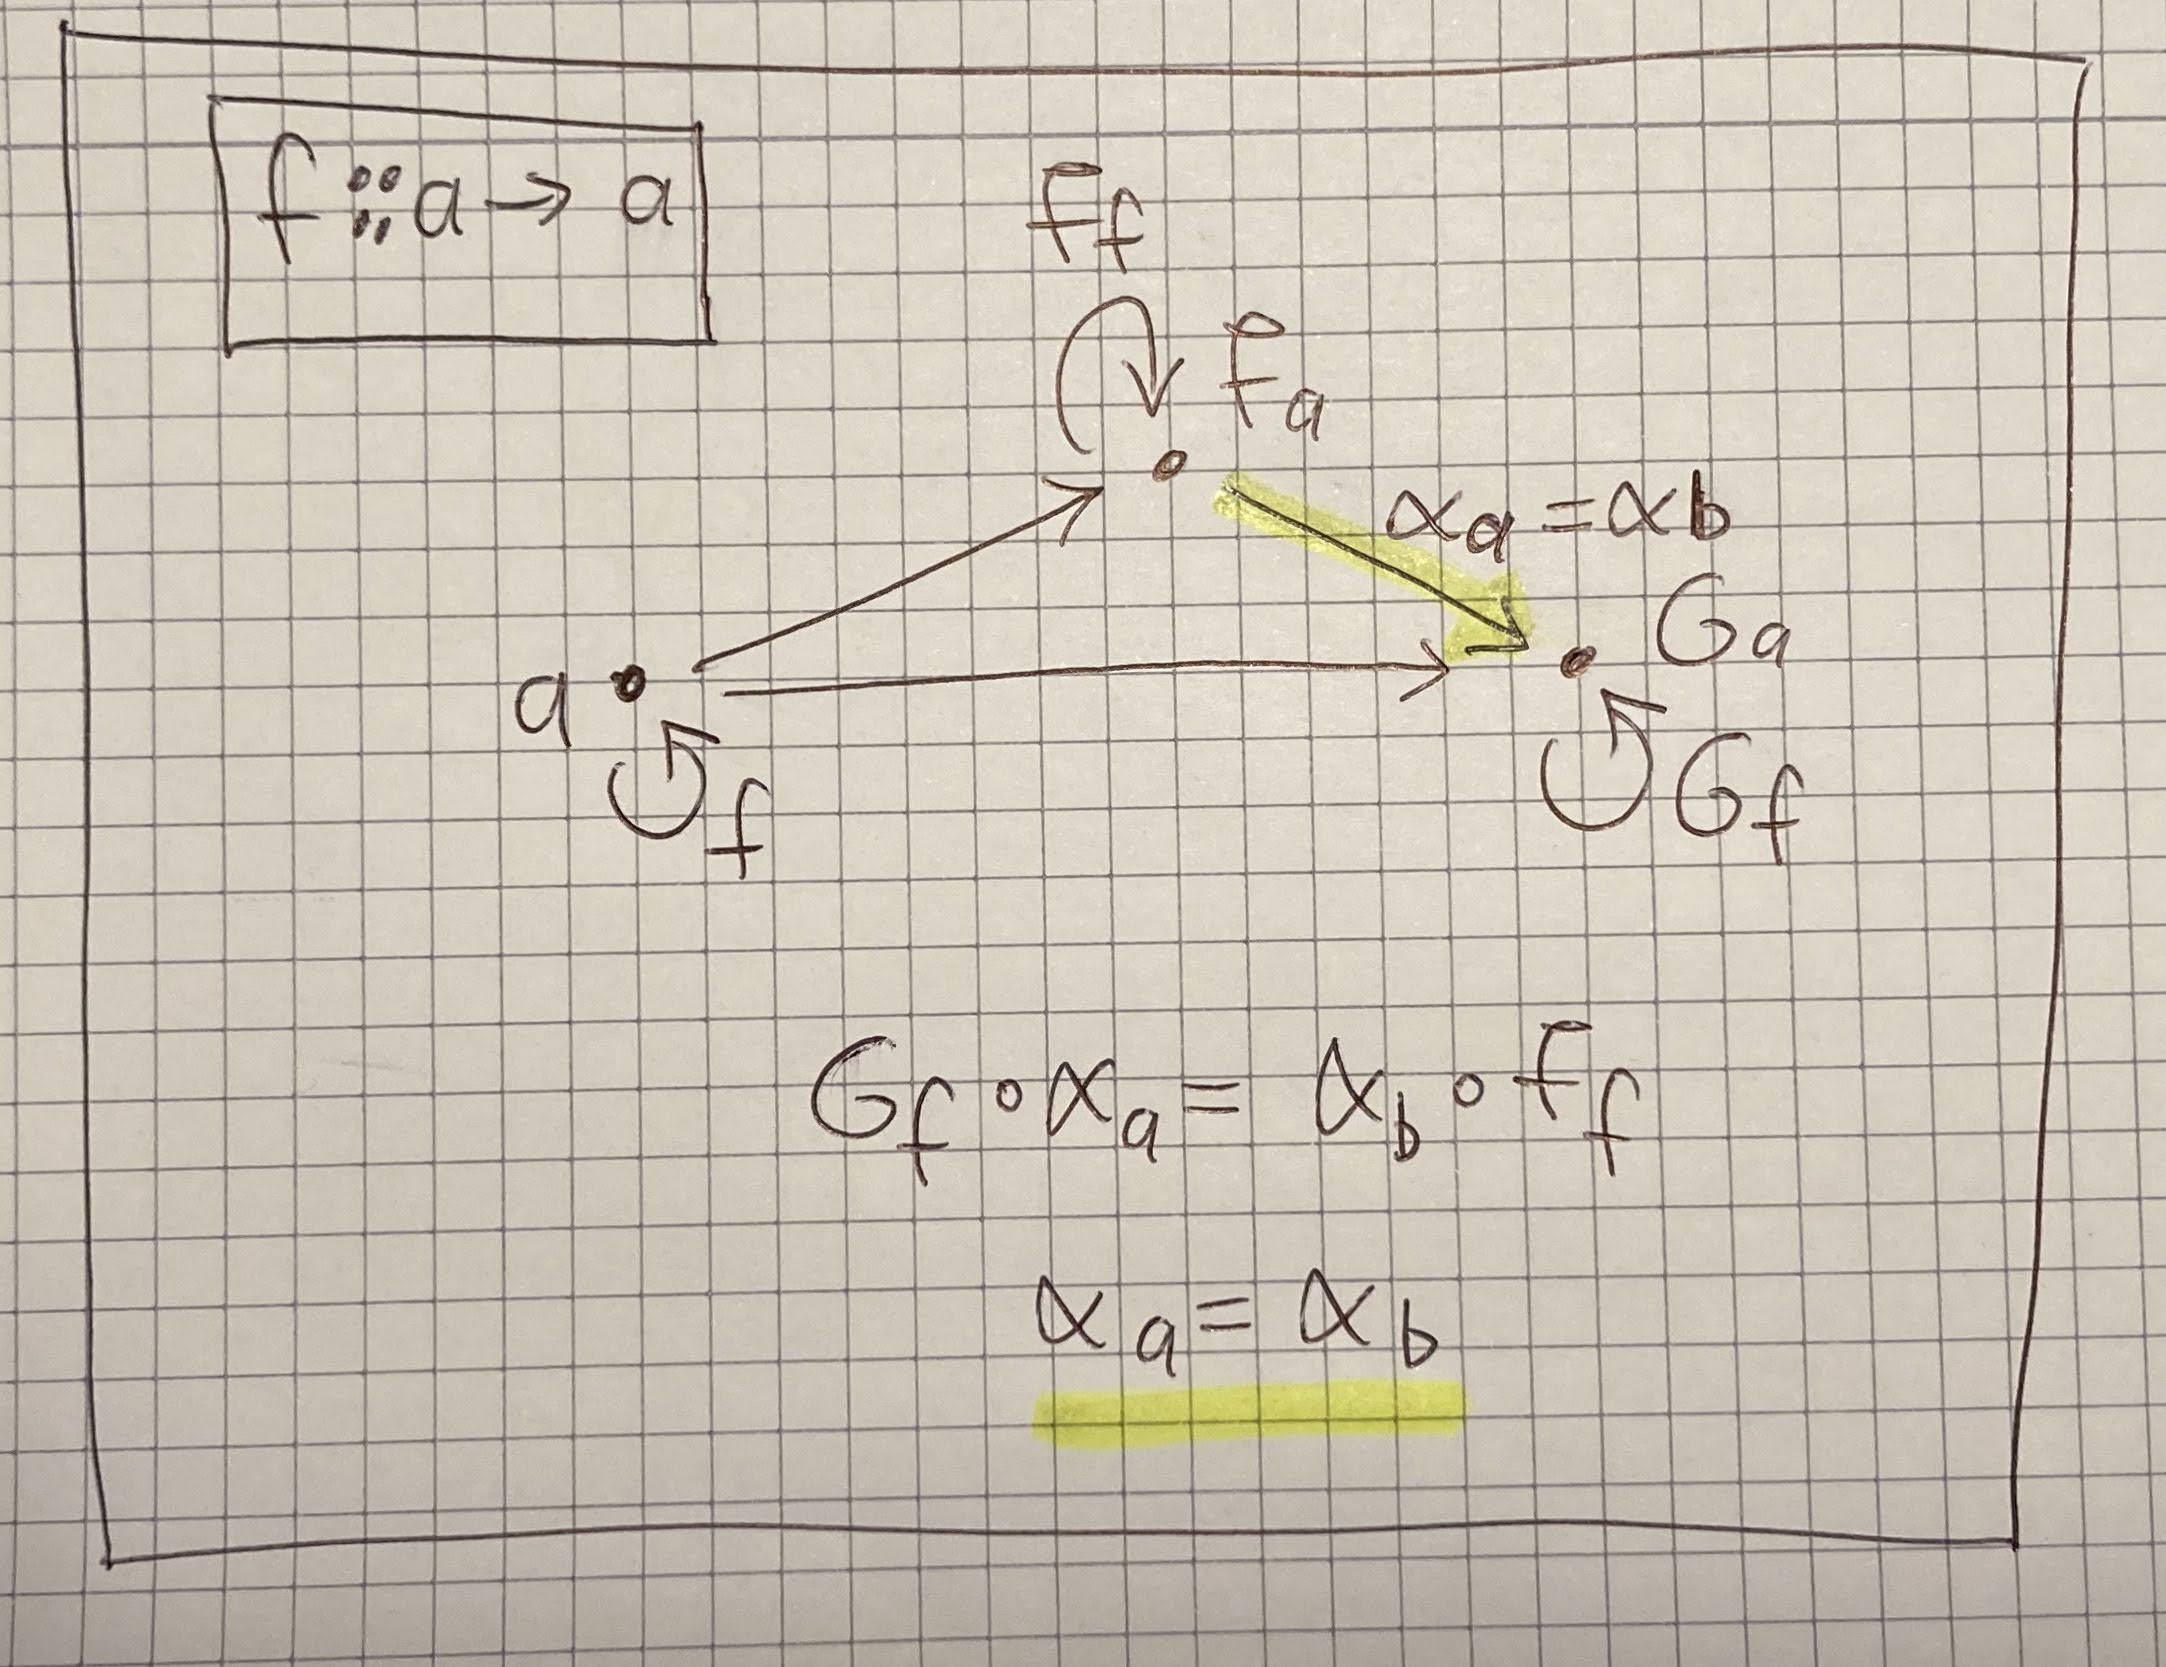 f :: a → a
Ff
Fa
αa = αb
Ga
a
f
Gf
Gf ∘ αa = αb ∘ Ff
αa = αb